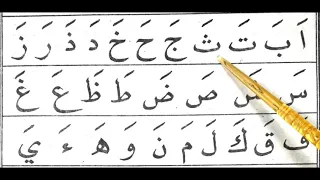 اَ بَ تَ ثَ جَ حَ خَ دَ ذَ رَ زَ
سَ صَ ضَ طَ ظَ عَ غَ
فَ قَ كَ لَ مَ نَ وَ هَ ءَ يَ